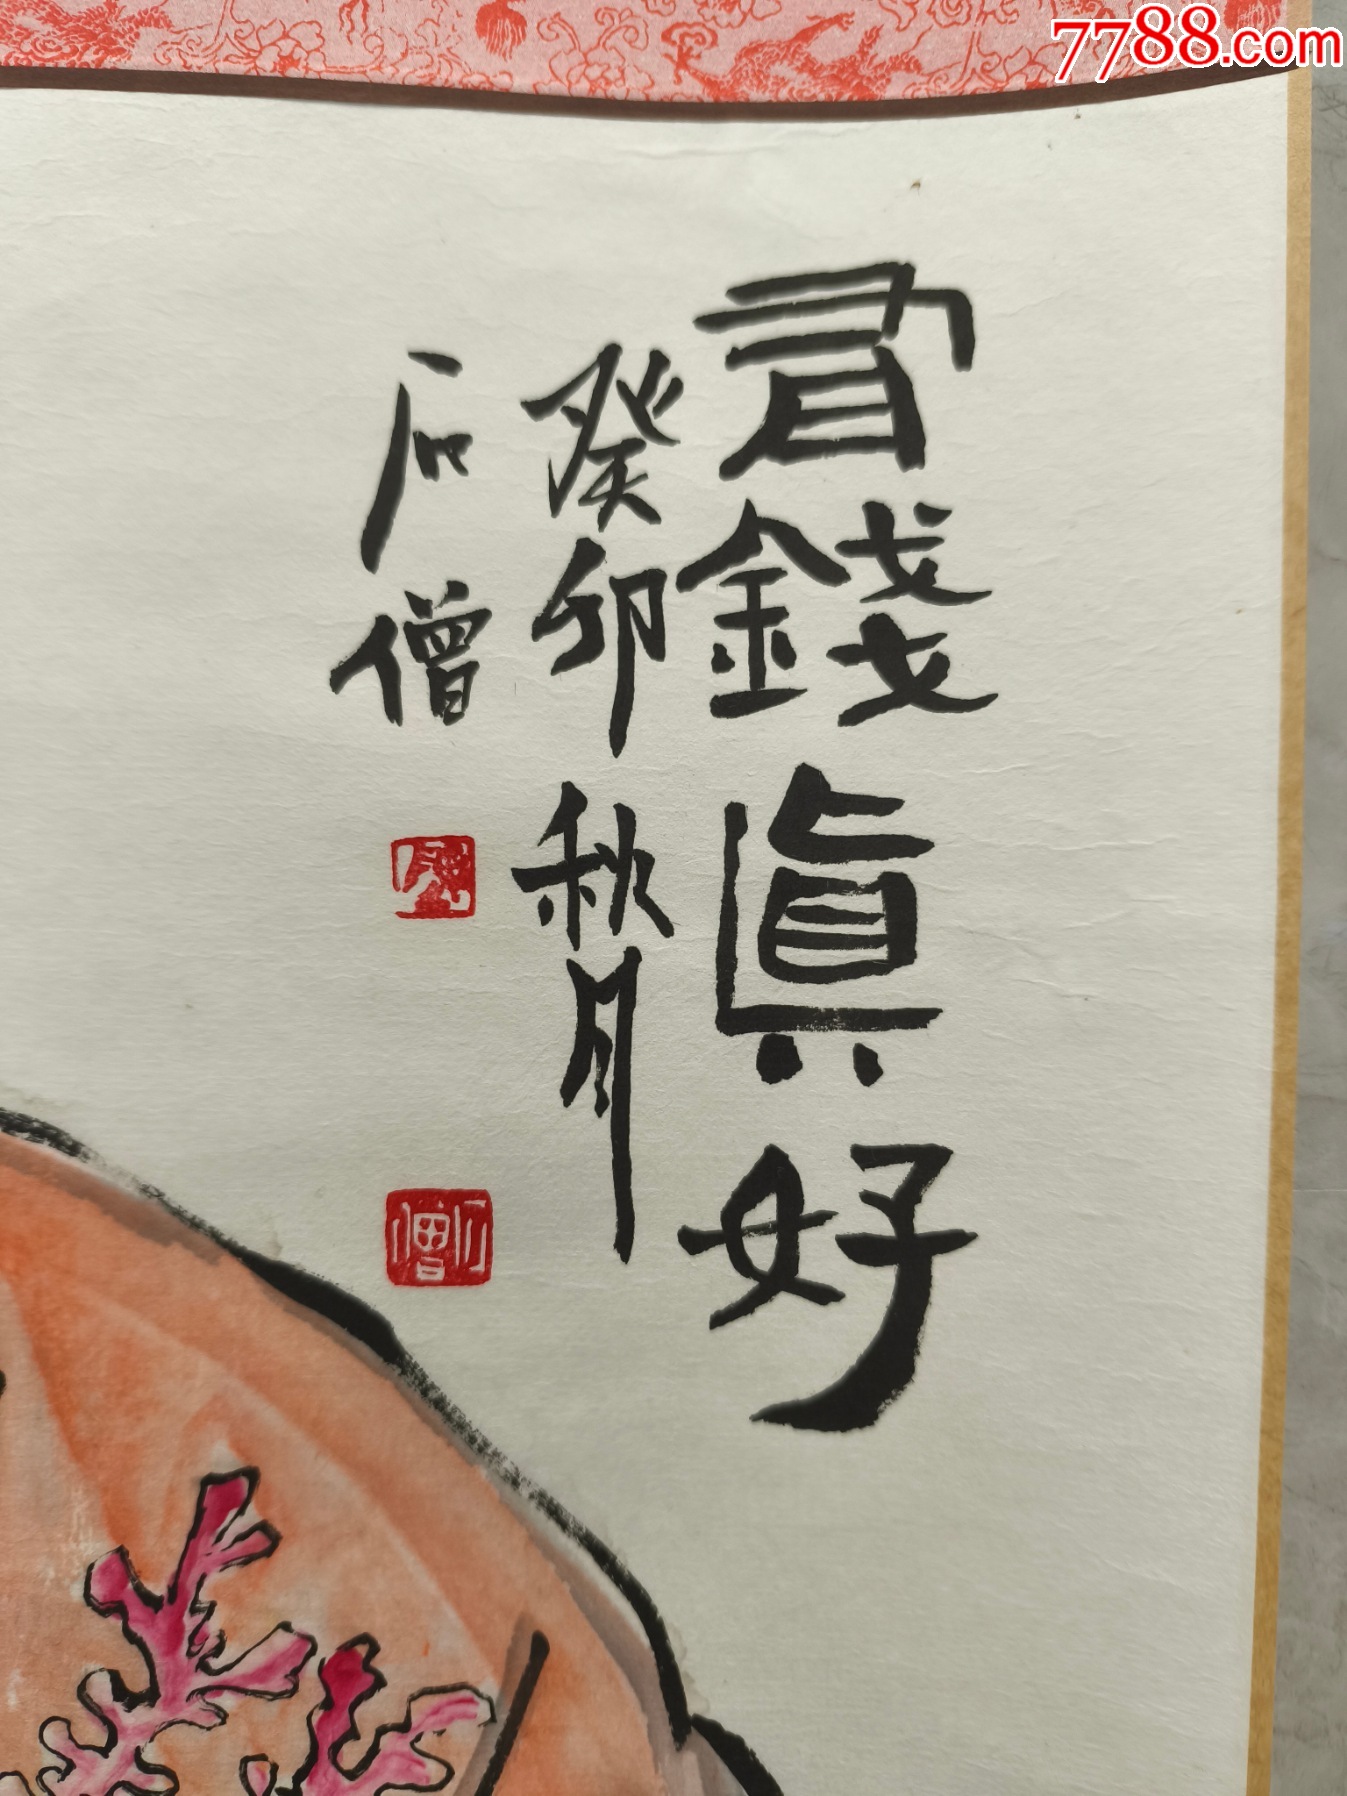 7788.com
有錢真好
癸卯秋月
石僧
石僧